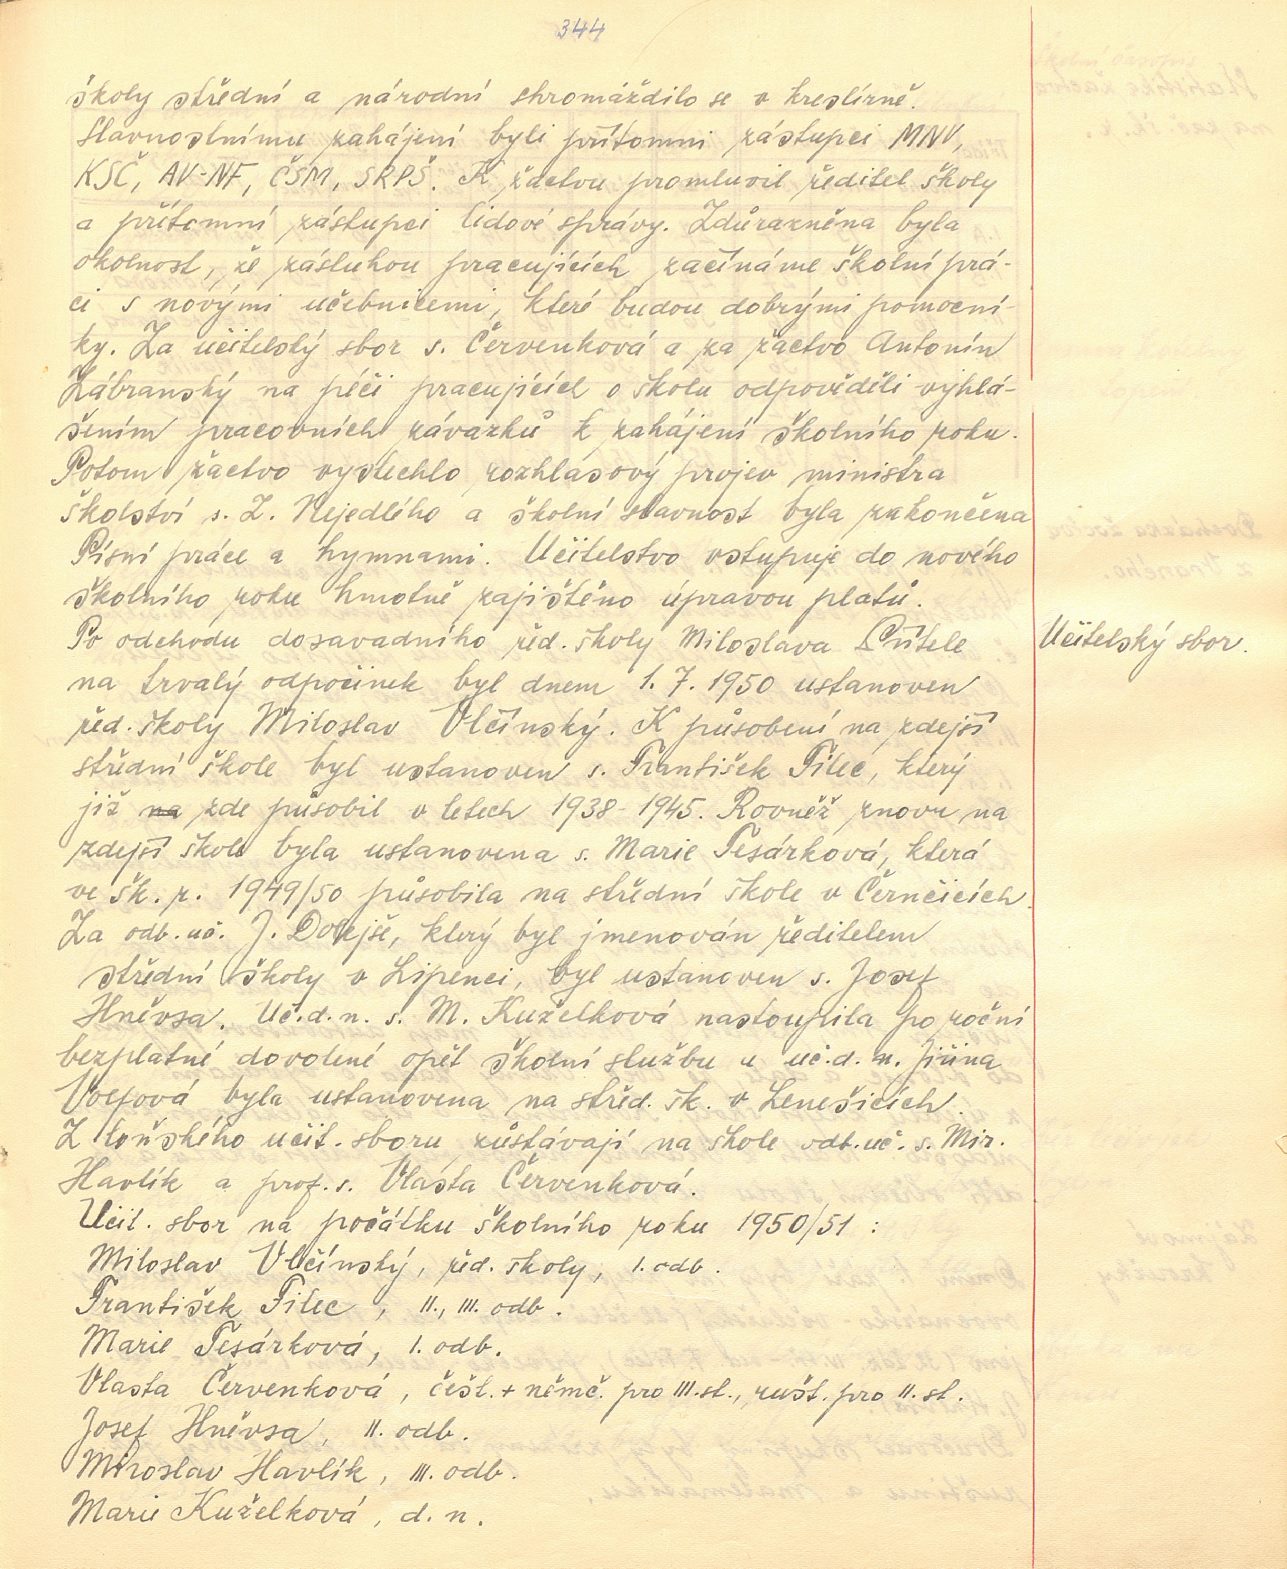 344
školy střední a národní shromáždilo se v kreslírně.
Slavnostnímu zahájení byli přítomni zástupci MNV,
KSČ, AV-NF, ČSM, SRPŠ. K žactvu promluvil ředitel školy
a přítomní zástupci lidové správy. Zdůrazněna byla
okolnost, že zásluhou pracujících začínáme školní prá-
ci s novými učebnicemi, které budou dobrými pomocní-
ky. Za učitelský sbor s. Červenková a za žactvo Antonín
Zábranský na péči pracujících o školu odpověděli vyhlá-
šením pracovních závazků k zahájení školního roku.
Potom žactvo vyslechlo rozhlasový projev ministra
školství s. Z. Nejedlého a školní slavnost byla zakončena
Písní práce a hymnami. Učitelstvo vstupuje do nového
školního roku hmotně zajištěno úpravou platů.
Po odchodu dosavadního řed. školy Miloslava
Učitelský sbor.
na trvalý odpočinek byl dnem 1. 7. 1950 ustanoven
řed. školy Miloslav Vlčínský. K působení na zdejší
střední škole byl ustanoven s. František Filec, který
již na zde působil v letech 1938-1945. Rovněž znovu na
zdejší škole byla ustanovena s. Marie Tesárková, která
ve šk. r. 1949/50 působila na střední škole v Černčicích.
Za odb. uč. J. Dolejše, který byl jmenován ředitelem
střední školy v Lipenci, byl ustanoven s. Josef
Hněvsa. Uč. d. n. s. M. Kuželková nastoupila po roční
bezplatné dovolené opět školní službu a uč. d. n. Jiřina
Volfová byla ustanovena na střed. šk. v Lenešicích.
Z loňského učit. sboru zůstávají na škole odb. uč. s. Mir.
Havlík a prof. s. Vlasta Červenková.
Učit. sbor na počátku školního roku 1950/51 :
Miloslav Vlčínský, řed. školy, I. odb.
František Filec, II., III. odb.
Marie Tesárková, I. odb.
Vlasta Červenková, češt. + němč. pro III. st., rušt. pro II. st.
Josef Hněvsa, II. odb.
Miroslav Havlík, III. odb.
Marie Kuželková, d. n.